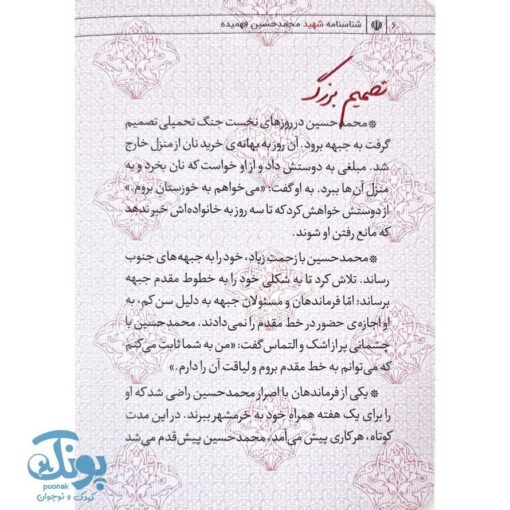 ۶ شناسنامه شهید محمدحسین فهمیده
تصمیم بزرگ
* محمدحسین در روزهای نخست جنگ تحمیلی تصمیم
گرفت به جبهه برود. آن روز به بهانه‌ی خرید نان از منزل خارج
شد. مبلغی به دوستش داد و از او خواست که نان بخرد و به
منزل آن‌ها ببرد. به او گفت: «می‌خواهم به خوزستان بروم.»
از دوستش خواهش کرد که تا سه روز به خانواده‌اش خبر ندهد
که مانع رفتن او شوند.
* محمدحسین با زحمت زیاد، خود را به جبهه‌های جنوب
رساند. تلاش کرد تا به شکلی خود را به خطوط مقدم جبهه
برساند؛ امّا فرماندهان و مسئولان جبهه به دلیل سن کم، به
او اجازه‌ی حضور در خط مقدم را نمی‌دادند. محمدحسین با
چشمانی پر از اشک و التماس گفت: «من به شما ثابت می‌کنم
که می‌توانم به خط مقدم بروم و لیاقت آن را دارم.»
* یکی از فرماندهان با اصرار محمدحسین راضی شد که او
را برای یک هفته همراه خود به خرمشهر ببرند. در این مدت
کوتاه، هر کاری پیش می‌آمد، محمدحسین پیش‌قدم می‌شد
پونک
puonak
کودک و نوجوان